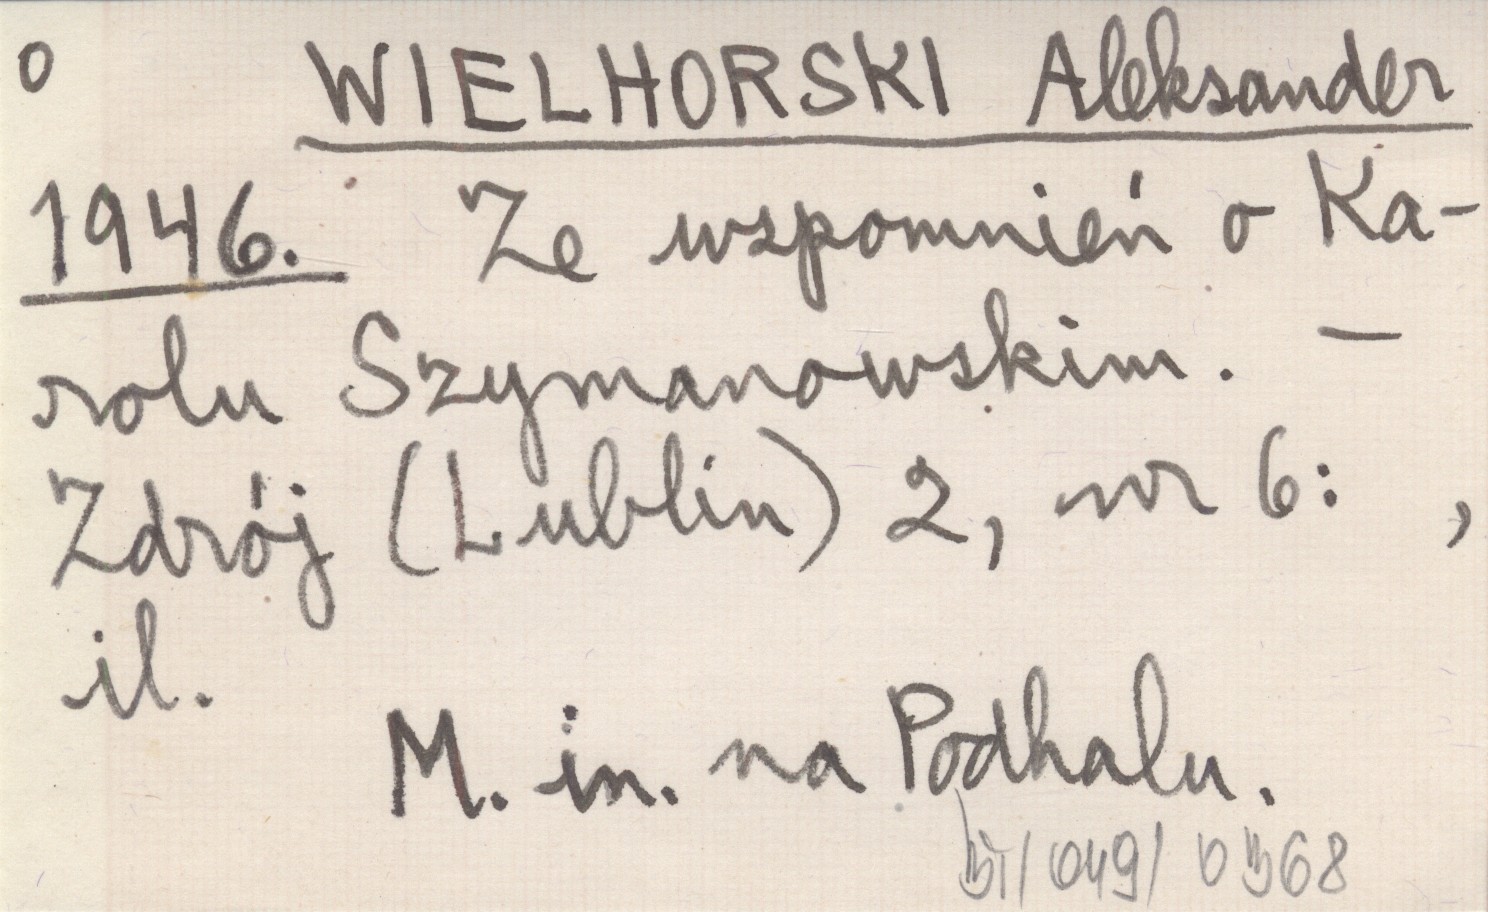 o WIELHORSKI Aleksander
1946. Ze wspomnień o Ka-
rolu Szymanowskim. —
Zdrój (Lublin) 2, nr 6: ,
il.
M. in. na Podhalu.
/049/